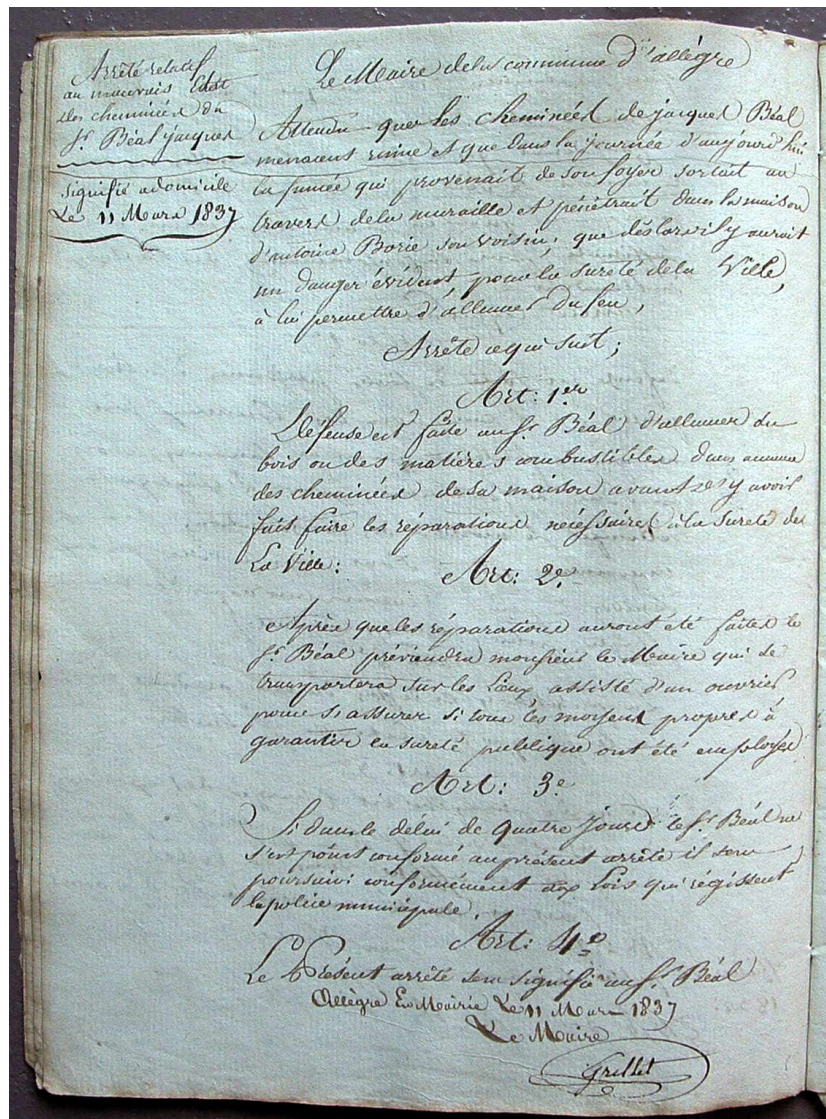 Arrêté relatif
au mauvais Etat
des cheminées du
Sr. Béal jacques
signifié a domicile
Le 11 Mars 1837
Le Maire de la commune d'allègre
Attendu que les cheminées de jacques Béal
menacent ruine et que dans la journée d'aujourd'hui
la fumée qui provenait de son foyer sortait au
travers de la muraille et pénétrait dans la maison
d'antoine Borie son voisin, que dès lors il y aurait
un danger évident, pour la sureté de la Ville,
à lui permettre d'allumer du feu,
Arrête ce qui suit;
Art: 1er
Défense est faite au Sr. Béal d'allumer du
bois ou des matières combustibles dans aucune
des cheminées de sa maison avant d'y avoir
fait faire les réparations nécessaires à la sureté de
La Ville:
Art: 2e.
Après que les réparations auront été faites le
Sr. Béal préviendra monsieur le Maire qui se
transportera sur les Lieux, assisté d'un ouvrier
pour s'assurer si tous les moyens propres à
garantir la sureté publique ont été employés
Art: 3e
Si dans le délai de quatre jours le Sr. Béal ne
s'est point conformé au présent arrêté il sera
poursuivi conformément aux Lois qui régissent
la police municipale.
Art: 4e
Le Présent arrêté sera signifié au Sr. Béal
Allègre En Mairie Le 11 Mars 1837
Le Maire
Grellet